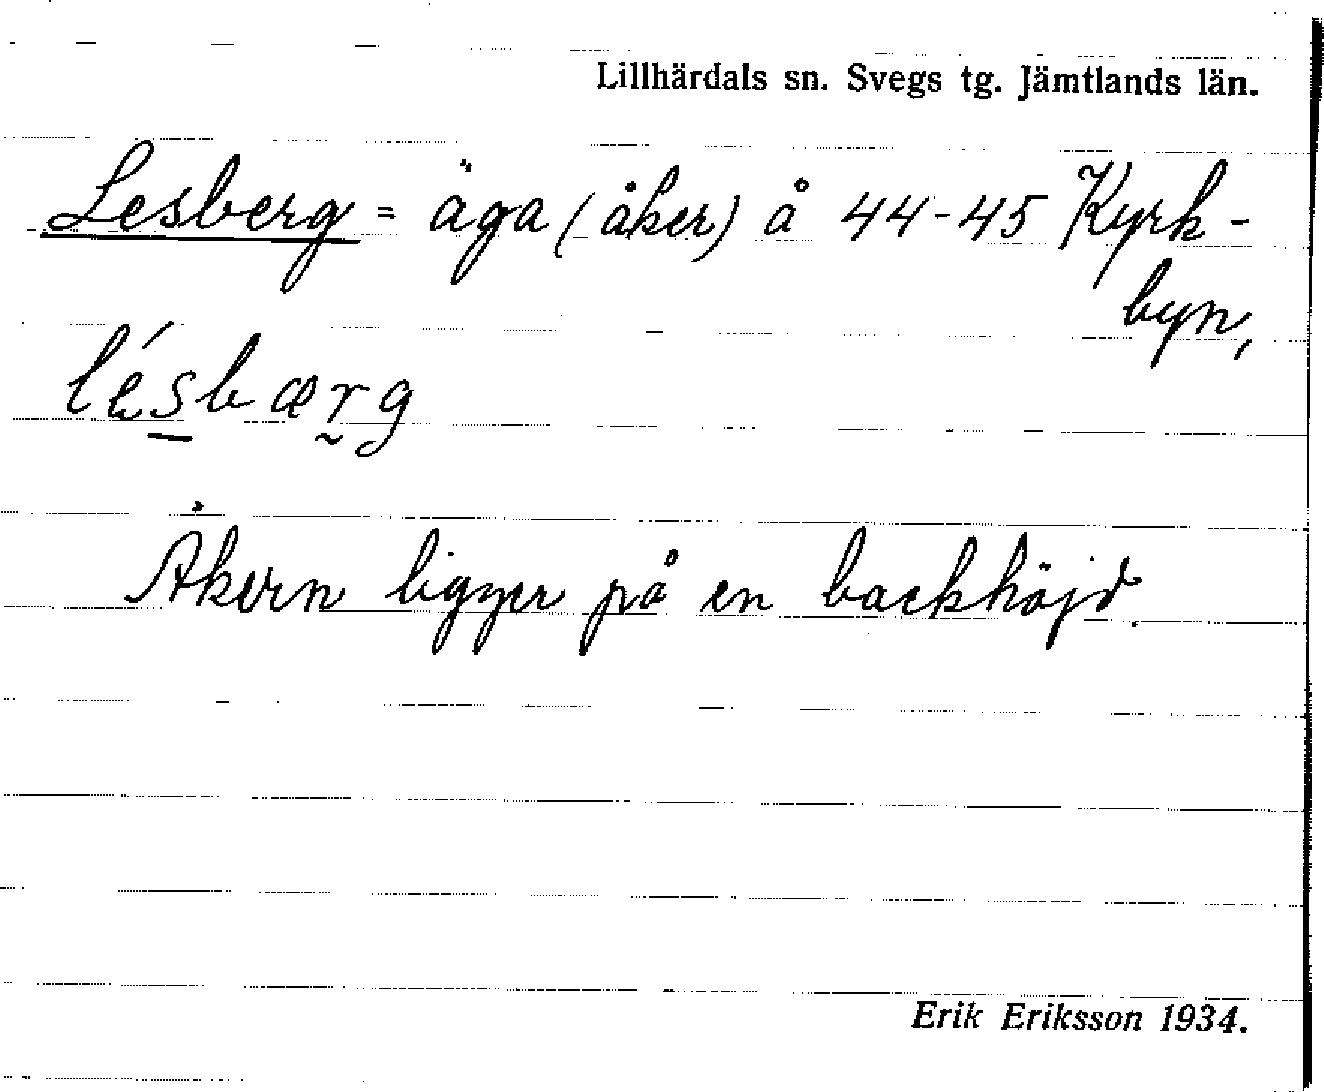 Lillhärdals sn. Svegs tg. Jämtlands län.
Lesberg = äga (åker) å 44-45 Kyrk-
byn,
lésbærg
Åkern ligger på en backhöjd.
Erik Eriksson 1934.